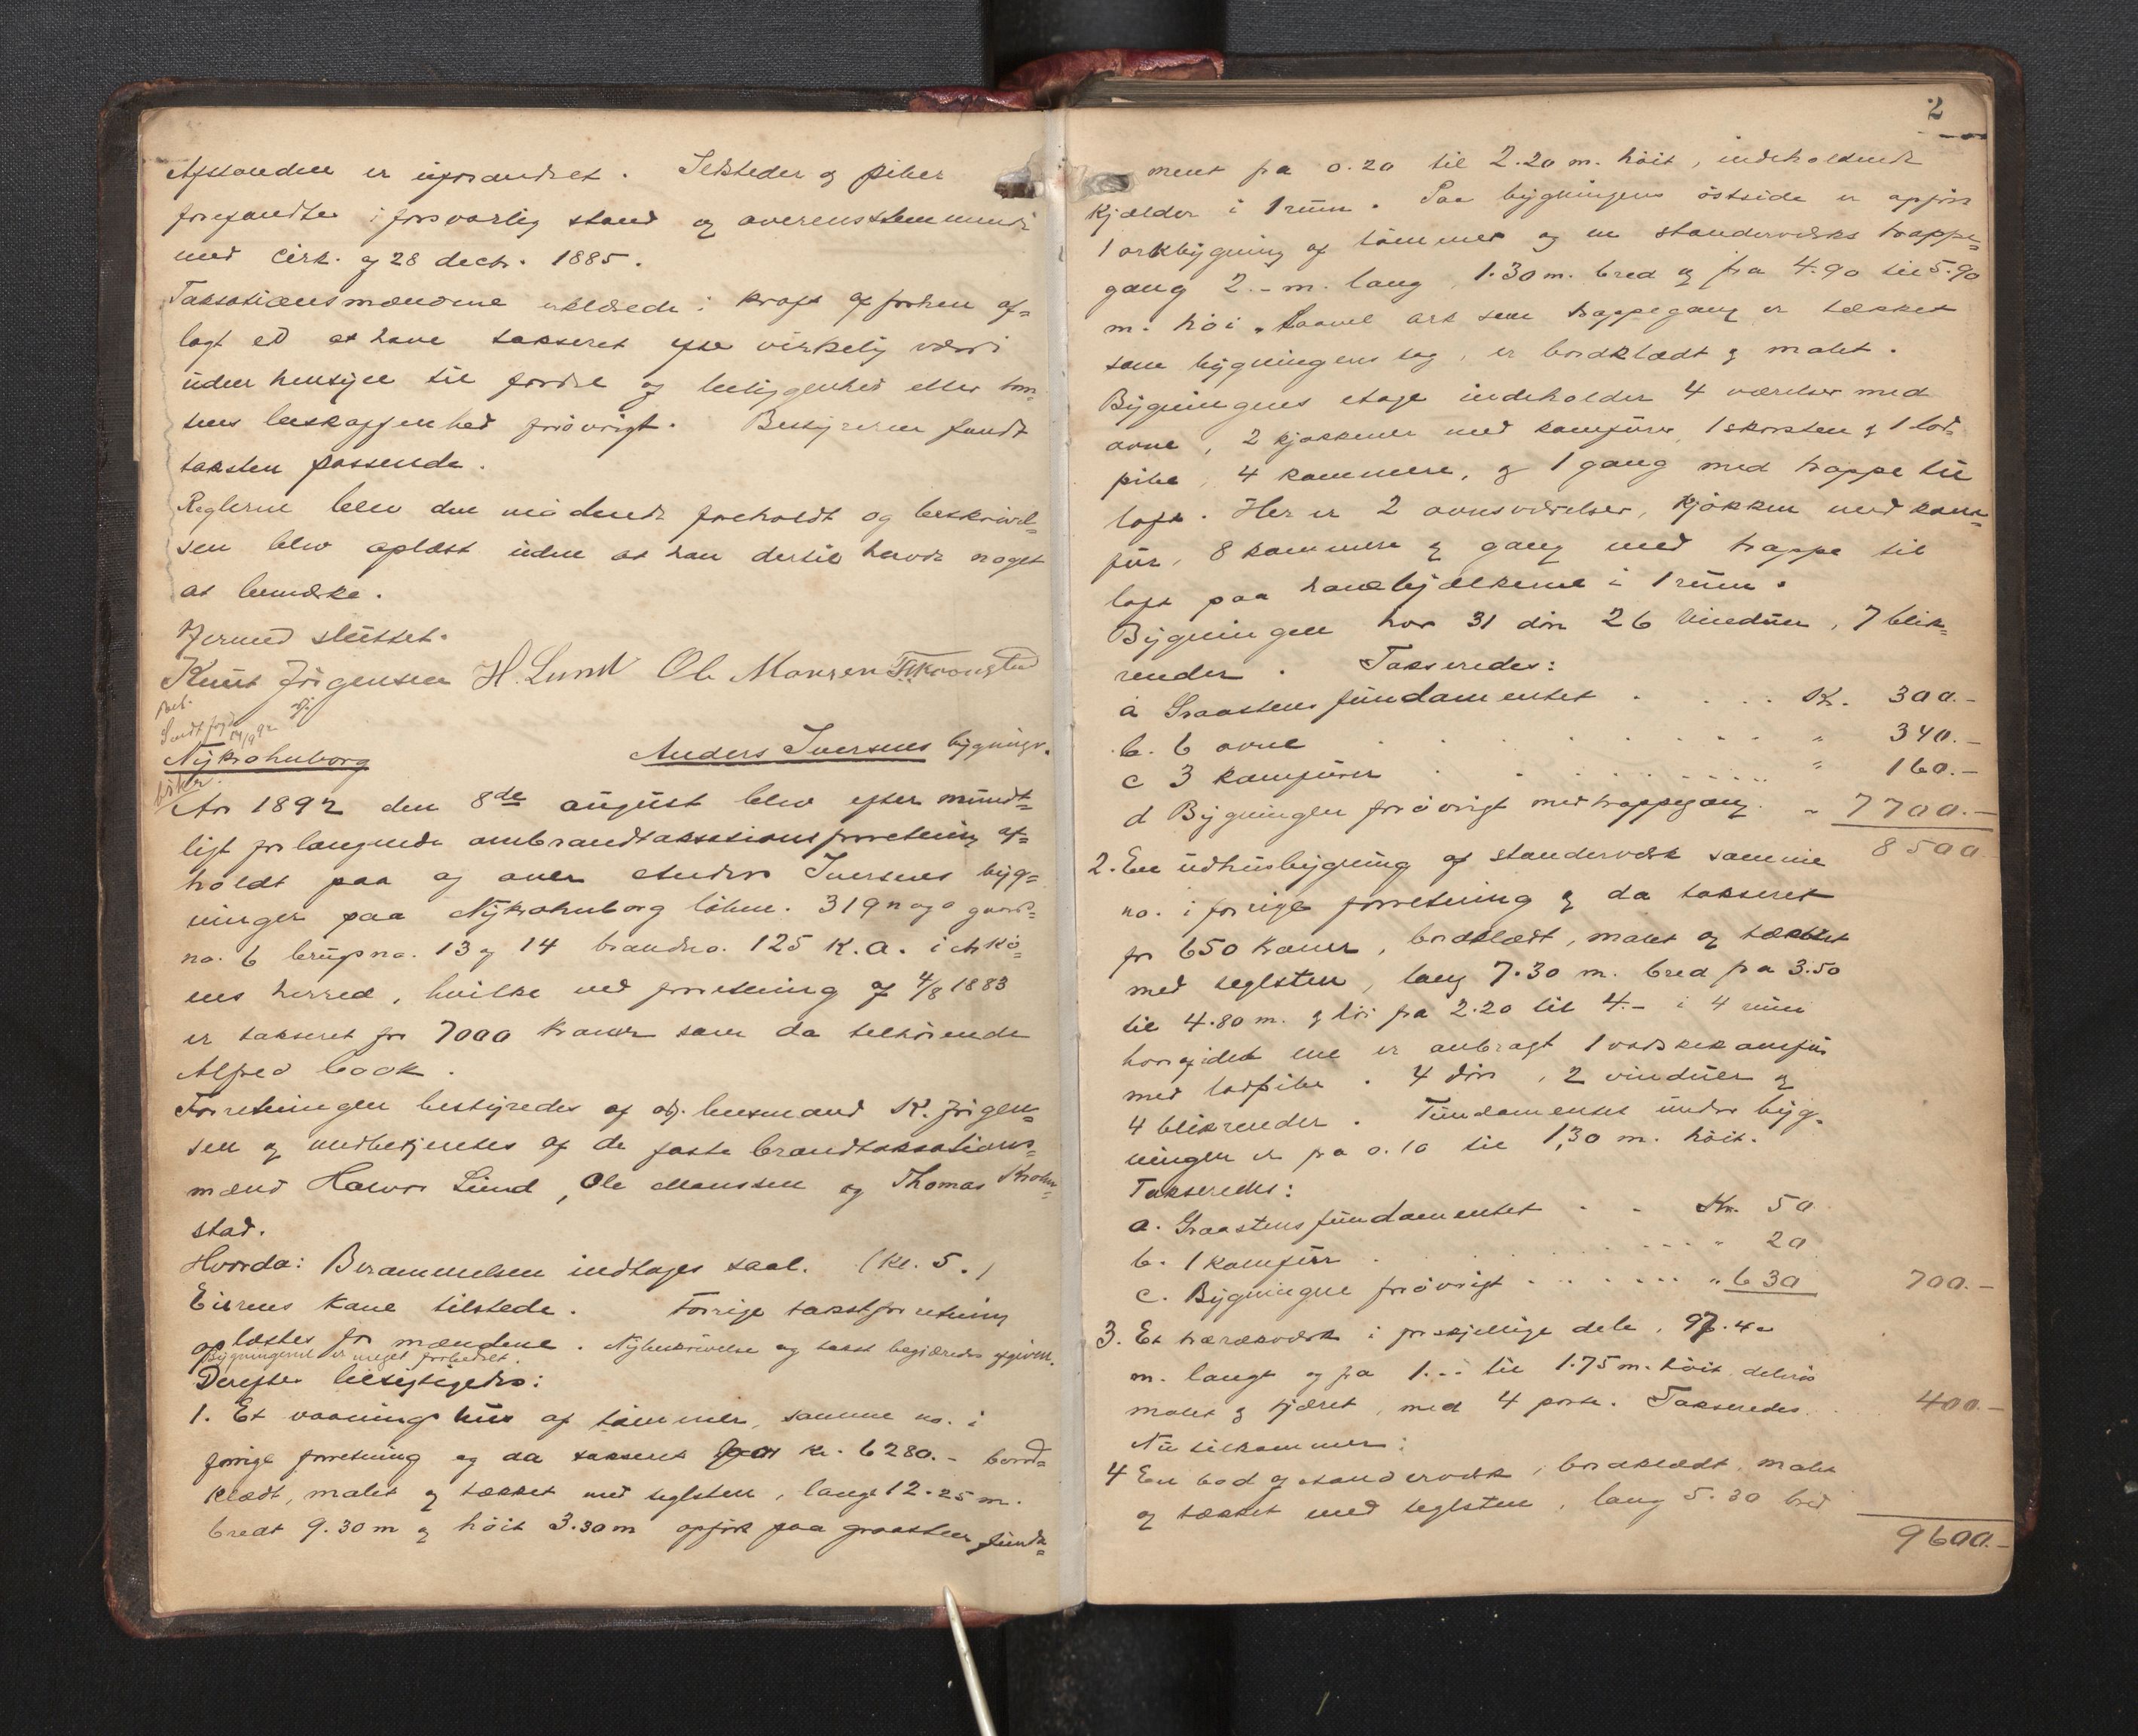 Afstanden er uforandret. Ildsteder og piber
forefandtes i forsvarlig stand og overensstemmende
med cirk. af 28 decbr. 1885.
Taksationsmændene erklærede i kraft af forhen af=
lagt ed at have takseret efter virkelig værdi
uden hensyn til fordel og beliggenhed eller tom=
tens beskaffenhed forøvrigt. Bestyreren fandt
taksten passende.
Reglerne blev den mødende foreholdt og beskrivel=
sen blev oplæst uden at han dertil havde noget
at bemærke.
Hermed sluttet.
Knut Jörgensen H. Lund Ole Monsen T. Kronstad
Bet.
Sendt fogden 14/9 92
Nykrohnborg Anders Iversens bygninger.
Aar 1892 den 8de august blev efter mündt=
ligt forlangende ombrandtaksationsforretning af=
holdt paa og over Anders Iversens byg=
ninger paa Nykrohnborg löbne. 319 gaards=
no. 6 brugsno. 13 og 14 brandno. 125 K.a. i Askö=
ens herred, hvilke ved forretning af 4/8 1883
er takseret for 7000 kroner som da tilhörende
Alfred Cook.
Forretningen bestyredes af const. lensmand K. Jörgen=
sen og medbetjentes af de faste brandtaksations=
mænd Halvor Lund, Ole Monsen og Thomas Krohn=
stad.
Hvorda: Berammelsen indtages saal. (Kl. 5.)
Eierens kone tilstede. Forrige takstforretning
oplæstes for mændene. Ny beskrivelse og takst begjæredes afgiven.
Bygningerne er meget forbedret.
Derefter besigtigedes:
1. Et vaaningshus af tömmer, samme no. i
forrige forretning og da takseret for kr. 6280.- bord=
klædt, malet og tækket med teglsten, langt 12.25 m.
bredt 9.30 m og höit 3.30 m opfört paa graastens funda=
2
ment fra 0.20 til 2.20 m. höit, indeholdende
kjælder i 1 rum. Paa bygningens östside er opfört
1 arkbygning af tömmer og en standerværks trappe=
gang 2.- m. lang, 1.30 m. bred og fra 4.90 til 5.90
m. höi. Saavel ark som trappegang er tækket
som bygningens tag, er bordklædt og malet.
Bygningens etage indeholder 4 værelser med
ovne, 2 kjökkener med komfurer, 1 skorsten og 1 lod=
pibe, 4 kammere, og 1 gang med trappe til
loft. Her er 2 ovnsværelser, kjökken med kom=
fur, 8 kammere og gang med trappe til
loft paa hanebjælkerne i 1 rum.
Bygningen har 31 dör 26 vinduer, 7 blik=
render. Takseredes:
a Graastensfundamentet . . . . Kr. 300.-
b. 6 ovne . . . . . . . . " 340.-
c 3 komfurer . . . . . . . " 160.-
d Bygningen forövrigt med trappegang " 7700.-
8500
2. En udhusbygning af standerværk samme
no. i forrige forretning og da takseret
for 650 kroner, bordklædt, malet og tækket
med teglsten, lang 7.30 m. bred fra 3.50
til 4.80 m. og höi fra 2.20 til 4.- i 4 rum
hvoraf i det ene er anbragt 1 vadskekomfur
med lodpibe. 4 dör, 2 vinduer og
4 blikrender. Fundamentet under byg=
ningen er fra 0.10 til 1,30 m. höit.
Takseredes:
a. Graastensfundamentet . . Kr. 50
b. 1 komfur . . . . . . . " 20
c. Bygningen forövrigt . . . . . . " 630 700.-
3. Et trærækværk i forskjellige dele, 97.40
m. langt og fra 1.- til 1.75 m. höit delvis
malet og tjæret, med 4 porte. Takseredes. . 400.-
Nu tilkommer:
4 En bod af standerværk, bordklædt, malet
og tækket med teglsten, lang 5.30 bred
9600.-